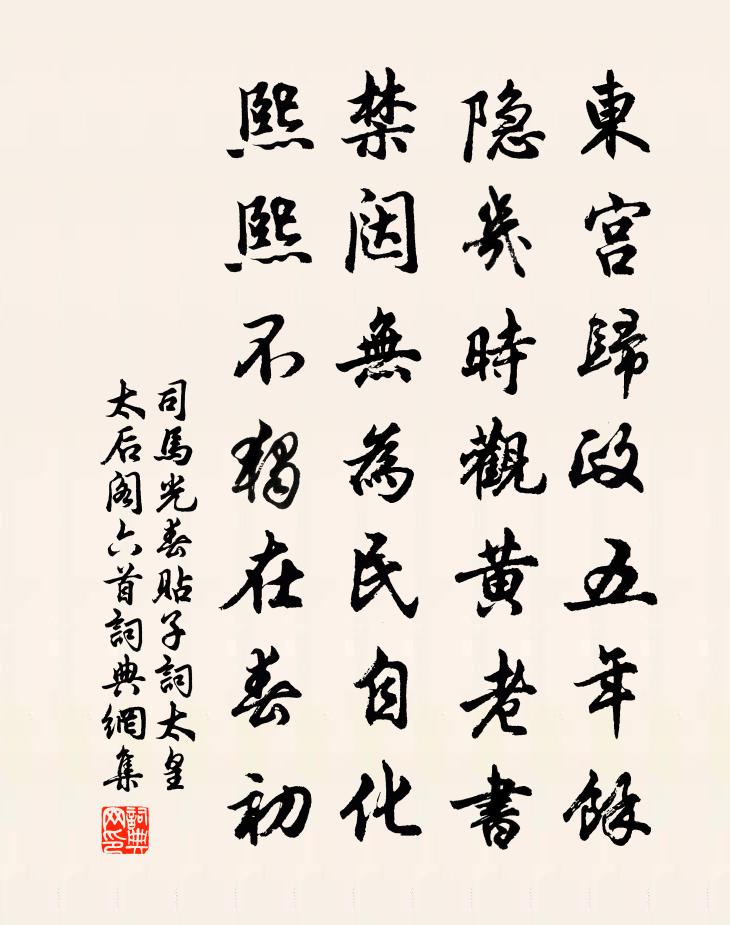 東宮歸政五年餘
隐幾時觀黃老書
禁闼無為民自化
熙熙不獨在春初
司馬光春貼子詞太皇
太后阁六首詞典網集
詞典
网印